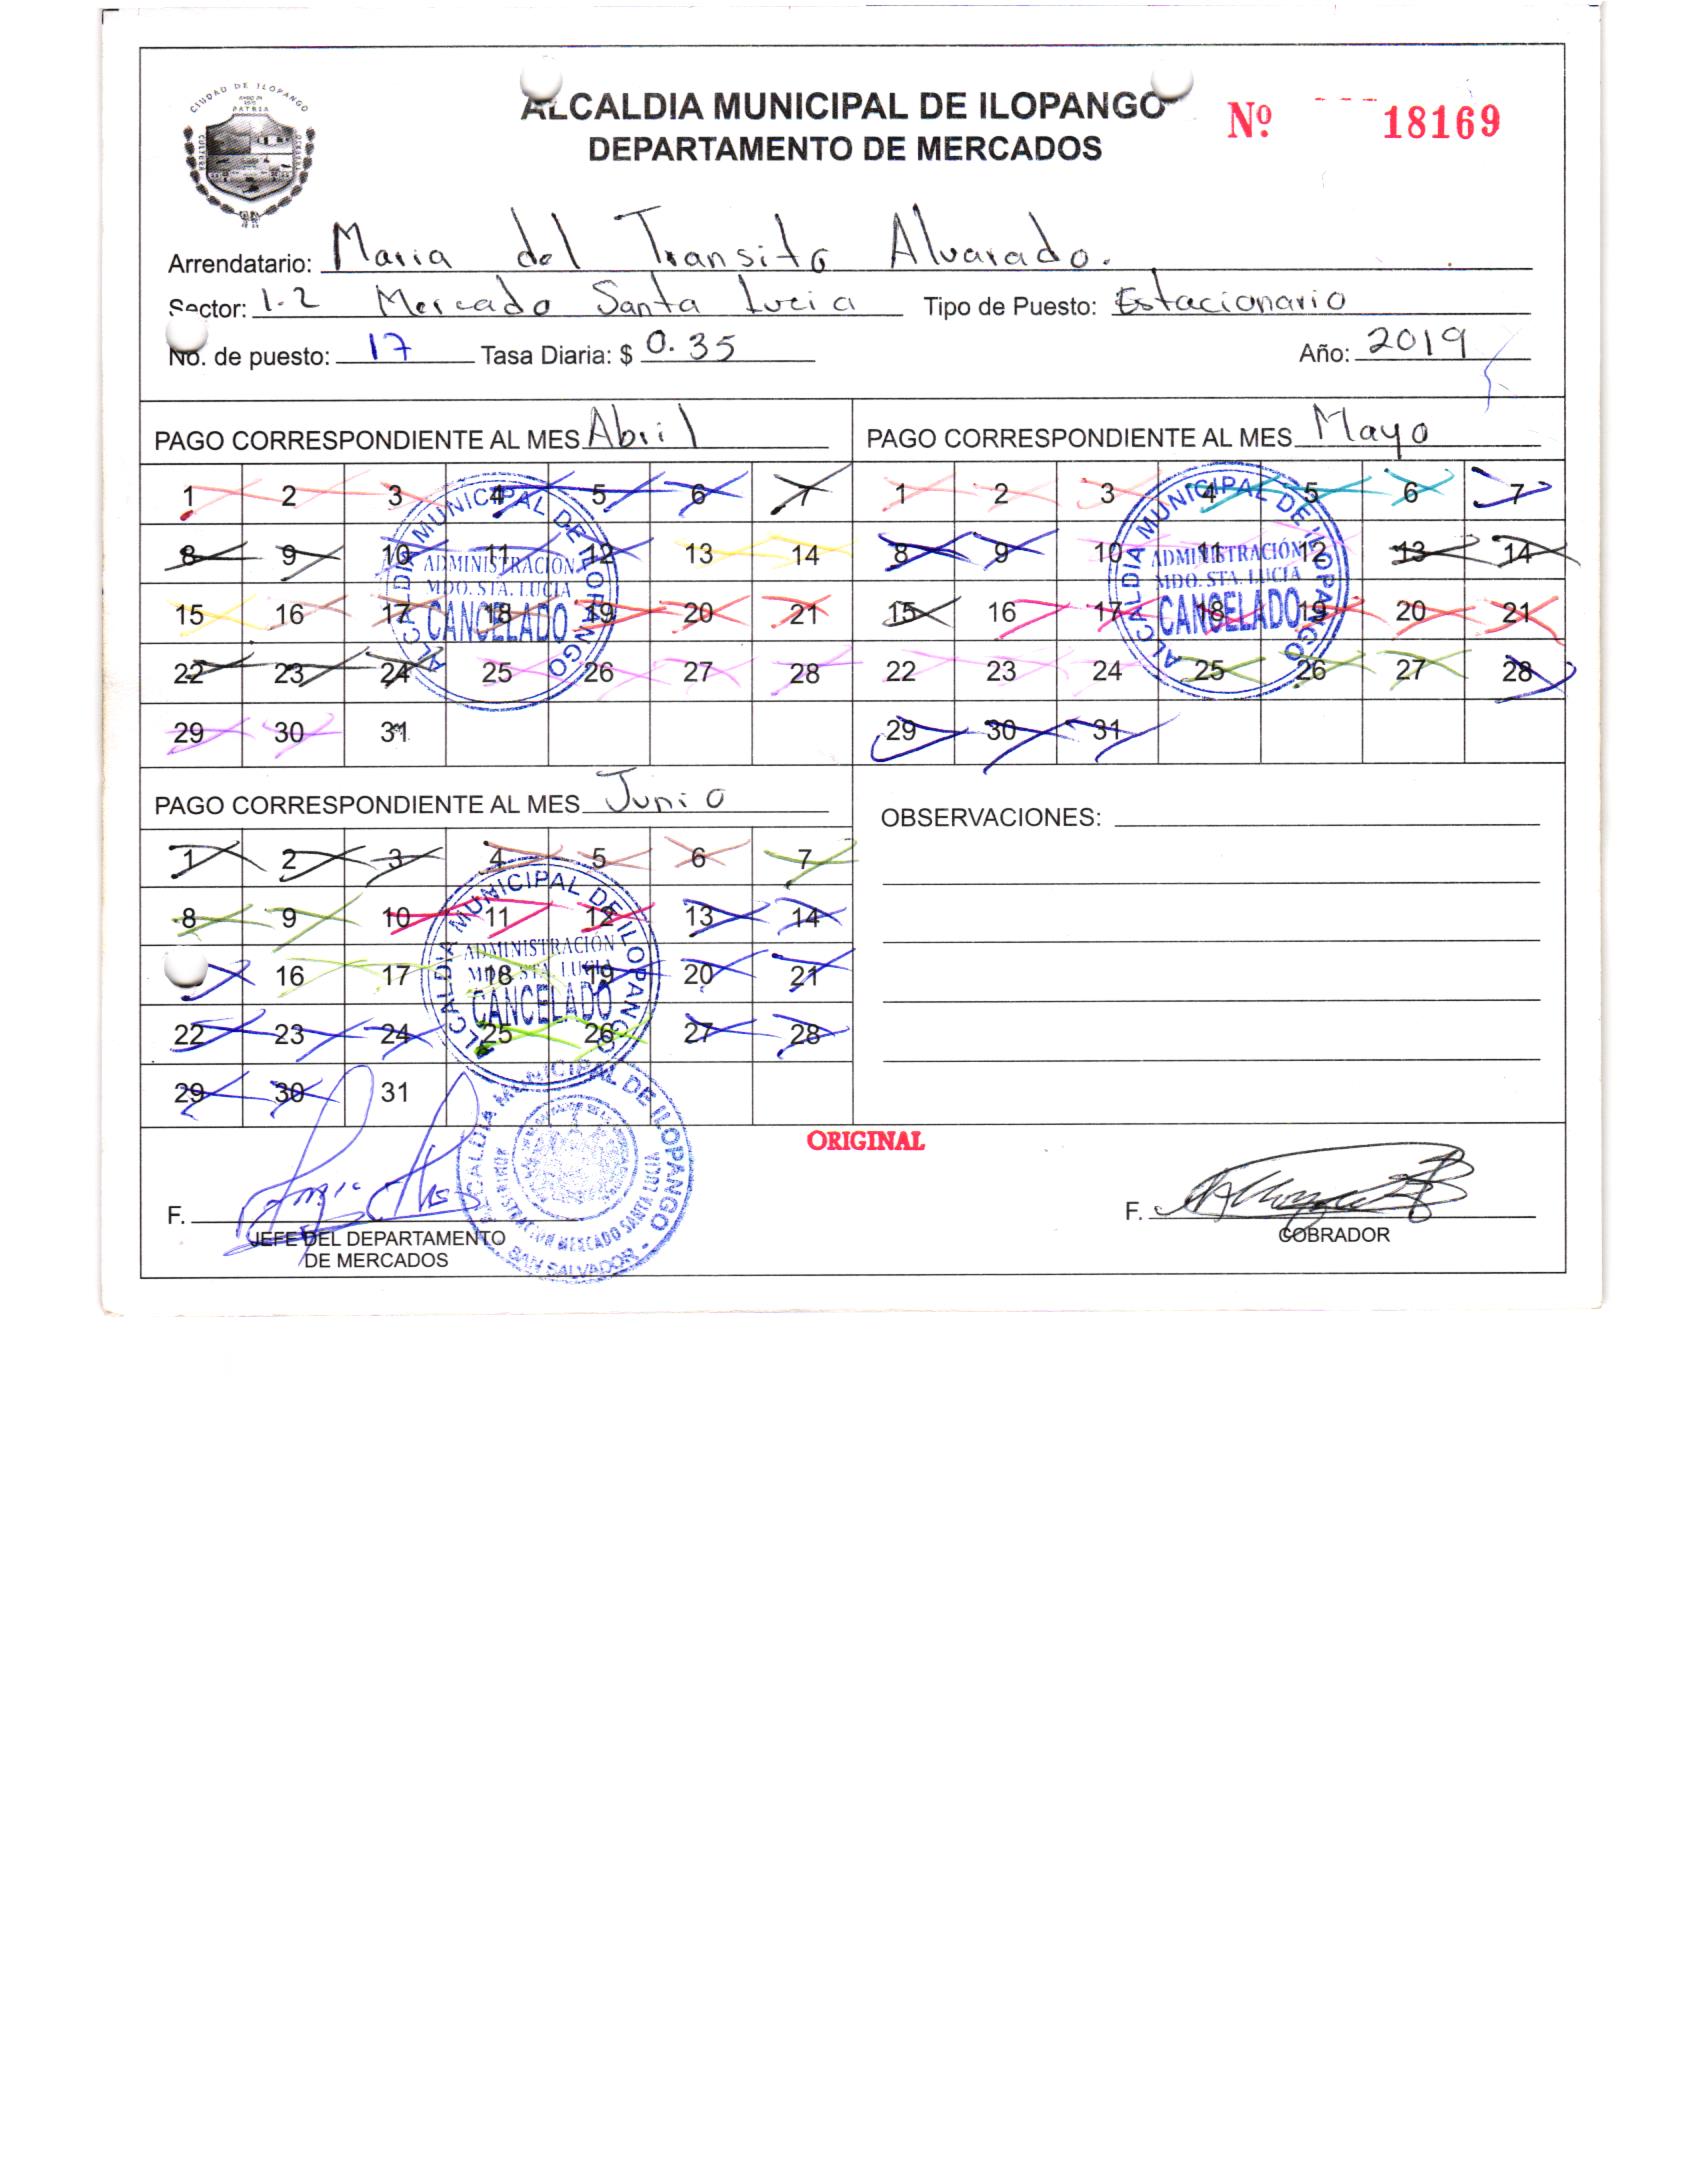 CIUDAD DE ILOPANGO
PATRIA
CULTURA
ALCALDIA MUNICIPAL DE ILOPANGO
DEPARTAMENTO DE MERCADOS
Nº 18169
Arrendatario: Maria del Transito Alvarado.
Sector: 1-2 Mercado Santa Lucia Tipo de Puesto: Estacionario
No. de puesto: 17 Tasa Diaria: $ 0.35 Año: 2019
PAGO CORRESPONDIENTE AL MES Abril
1 2 3 4 5 6 7
8 9 10 11 12 13 14
15 16 17 18 19 20 21
22 23 24 25 26 27 28
29 30 31
ALCALDIA MUNICIPAL DE ILOPANGO
ADMINISTRACIÓN
MDO. STA. LUCIA
CANCELADO
PAGO CORRESPONDIENTE AL MES Mayo
1 2 3 4 5 6 7
8 9 10 11 12 13 14
15 16 17 18 19 20 21
22 23 24 25 26 27 28
29 30 31
ALCALDIA MUNICIPAL DE ILOPANGO
ADMINISTRACIÓN
MDO. STA. LUCIA
CANCELADO
PAGO CORRESPONDIENTE AL MES Junio
1 2 3 4 5 6 7
8 9 10 11 12 13 14
16 17 18 19 20 21
22 23 24 25 26 27 28
29 30 31
ALCALDIA MUNICIPAL DE ILOPANGO
ADMINISTRACIÓN
MDO. STA. LUCIA
CANCELADO
OBSERVACIONES:
ORIGINAL
ALCALDIA MUNICIPAL DE ILOPANGO
MERCADO SANTA LUCIA
SAN SALVADOR
F.
JEFE DEL DEPARTAMENTO
DE MERCADOS
F.
COBRADOR